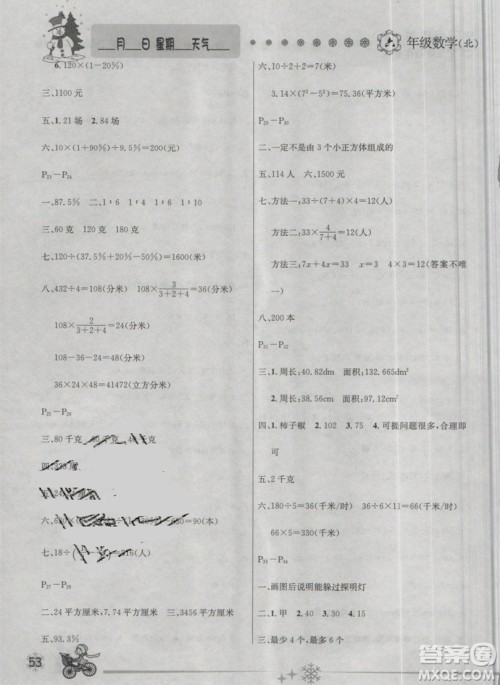 月 日 星期 天气
六 年级数学(北)
6. 120×(1-20%)
三、1100 元
五、1. 21场 2. 84场
六、10×(1+90%)÷9.5%=200(元)
P₂₃—P₂₄
一、87.5% 二、1:6 1:6 1:7
三、60克 120克
七、120÷(37.5%-30%)=1600(米)
八、432÷4=108(分米) 108×3/(3+2+4)=36(分米)
108×2/(3+2+4)=24(分米)
108-36-24=48(分米)
36×24×48=41472(立方分米)
P₂₅—
三、80千克 60千克
四、
五、24
六、180÷ =90(本)
七、18÷ =216(人)
P₂₇—
二、24平方厘米 54平方厘米 三、3456平方厘米
五、93.3%
53
六、10÷2+2=7(米)
3.14×(7²-5²)=75.36(平方米)
P₂₉—
二、一定不是由3个小正方体组成的
五、114人 六、1500元
七、方法一:33÷(7+4)×4=12(人)
方法二:33×4/(7+4)=12(人)
方法三:7x+4x=33 x=3 4×3=12(答案不唯
一)
八、200本
P₃₁—P₃₂
三、1. 周长:40.82dm 面积:132.665dm²
2. 周长:38.56dm 面积:97.12dm²
四、1. 柿子椒 2. 102 3. 75 4. 可提问题很多,合理即
可
五、2千克
六、180÷5=36(千米/时) 36÷6×11=66(千米/时)
66×5=330(千米)
P₃₃—
一、画图后说明能躲过探明灯
二、1. 甲 2. 40 3. 30 4. 15
三、最少4个,最多6个
作业帮
zuoyebang.com